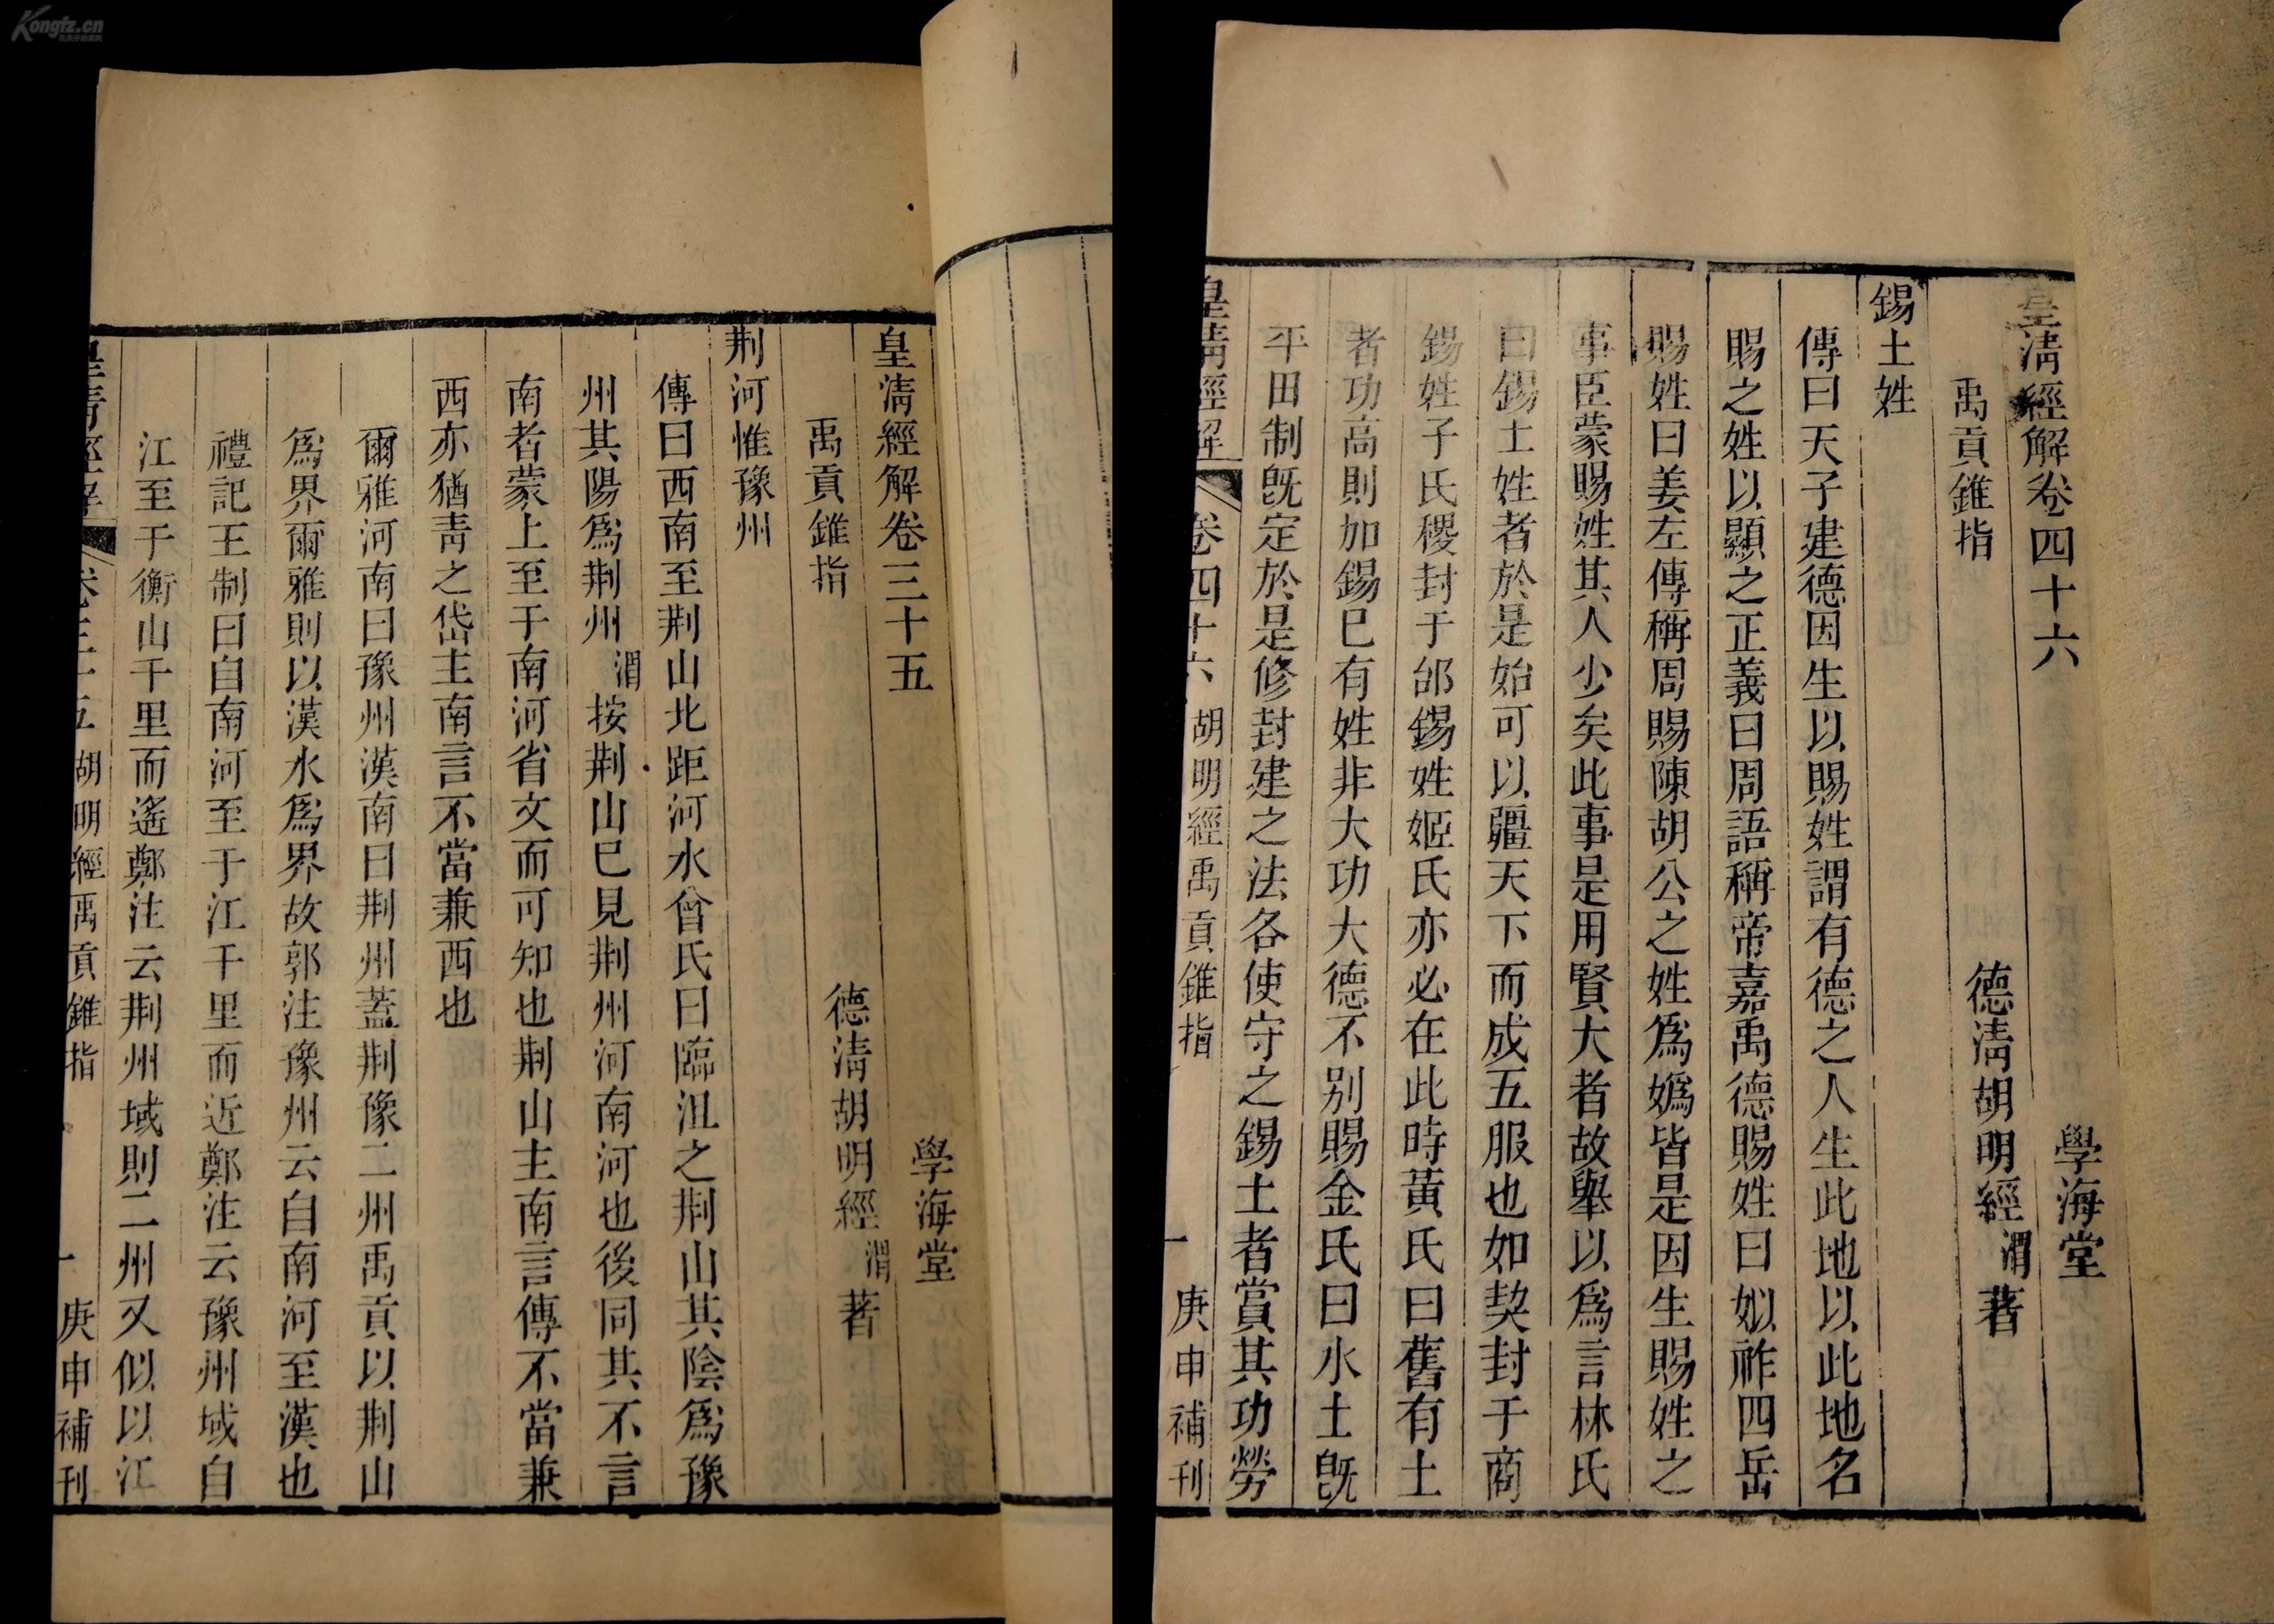 Kongfz.cn
皇淸經解卷三十五
學海堂
禹貢錐指
德淸胡明經渭著
荆河惟豫州
傳曰西南至荆山北距河水曾氏曰臨沮之荆山其陰爲豫
州其陽爲荆州渭按荆山巳見荆州河南河也後同其不言
南者蒙上至于南河省文而可知也荆山主南言傳不當兼
西亦猶靑之岱主南言不當兼西也
爾雅河南曰豫州漢南曰荆州蓋荆豫二州禹貢以荆山
爲界爾雅則以漢水爲界故郭注豫州云自南河至漢也
禮記王制曰自南河至于江千里而近鄭注云豫州域自
江至于衡山千里而遙鄭注云荆州域則二州又似以江
皇清經解
卷三十五
胡明經禹貢錐指
一
庚申補刊
皇淸經解卷四十六
學海堂
禹貢錐指
德淸胡明經渭著
錫土姓
傳曰天子建德因生以賜姓謂有德之人生此地以此地名
賜之姓以顯之正義曰周語稱帝嘉禹德賜姓曰姒祚四岳
賜姓曰姜左傳稱周賜陳胡公之姓爲嬀皆是因生賜姓之
事臣蒙賜姓其人少矣此事是用賢大者故舉以爲言林氏
曰錫土姓者於是始可以疆天下而成五服也如契封于商
錫姓子氏稷封于邰錫姓姬氏亦必在此時黃氏曰舊有土
者功高則加錫巳有姓非大功大德不别賜金氏曰水土旣
平田制旣定於是修封建之法各使守之錫土者賞其功勞
皇清經解
卷四十六
胡明經禹貢錐指
一
庚申補刊